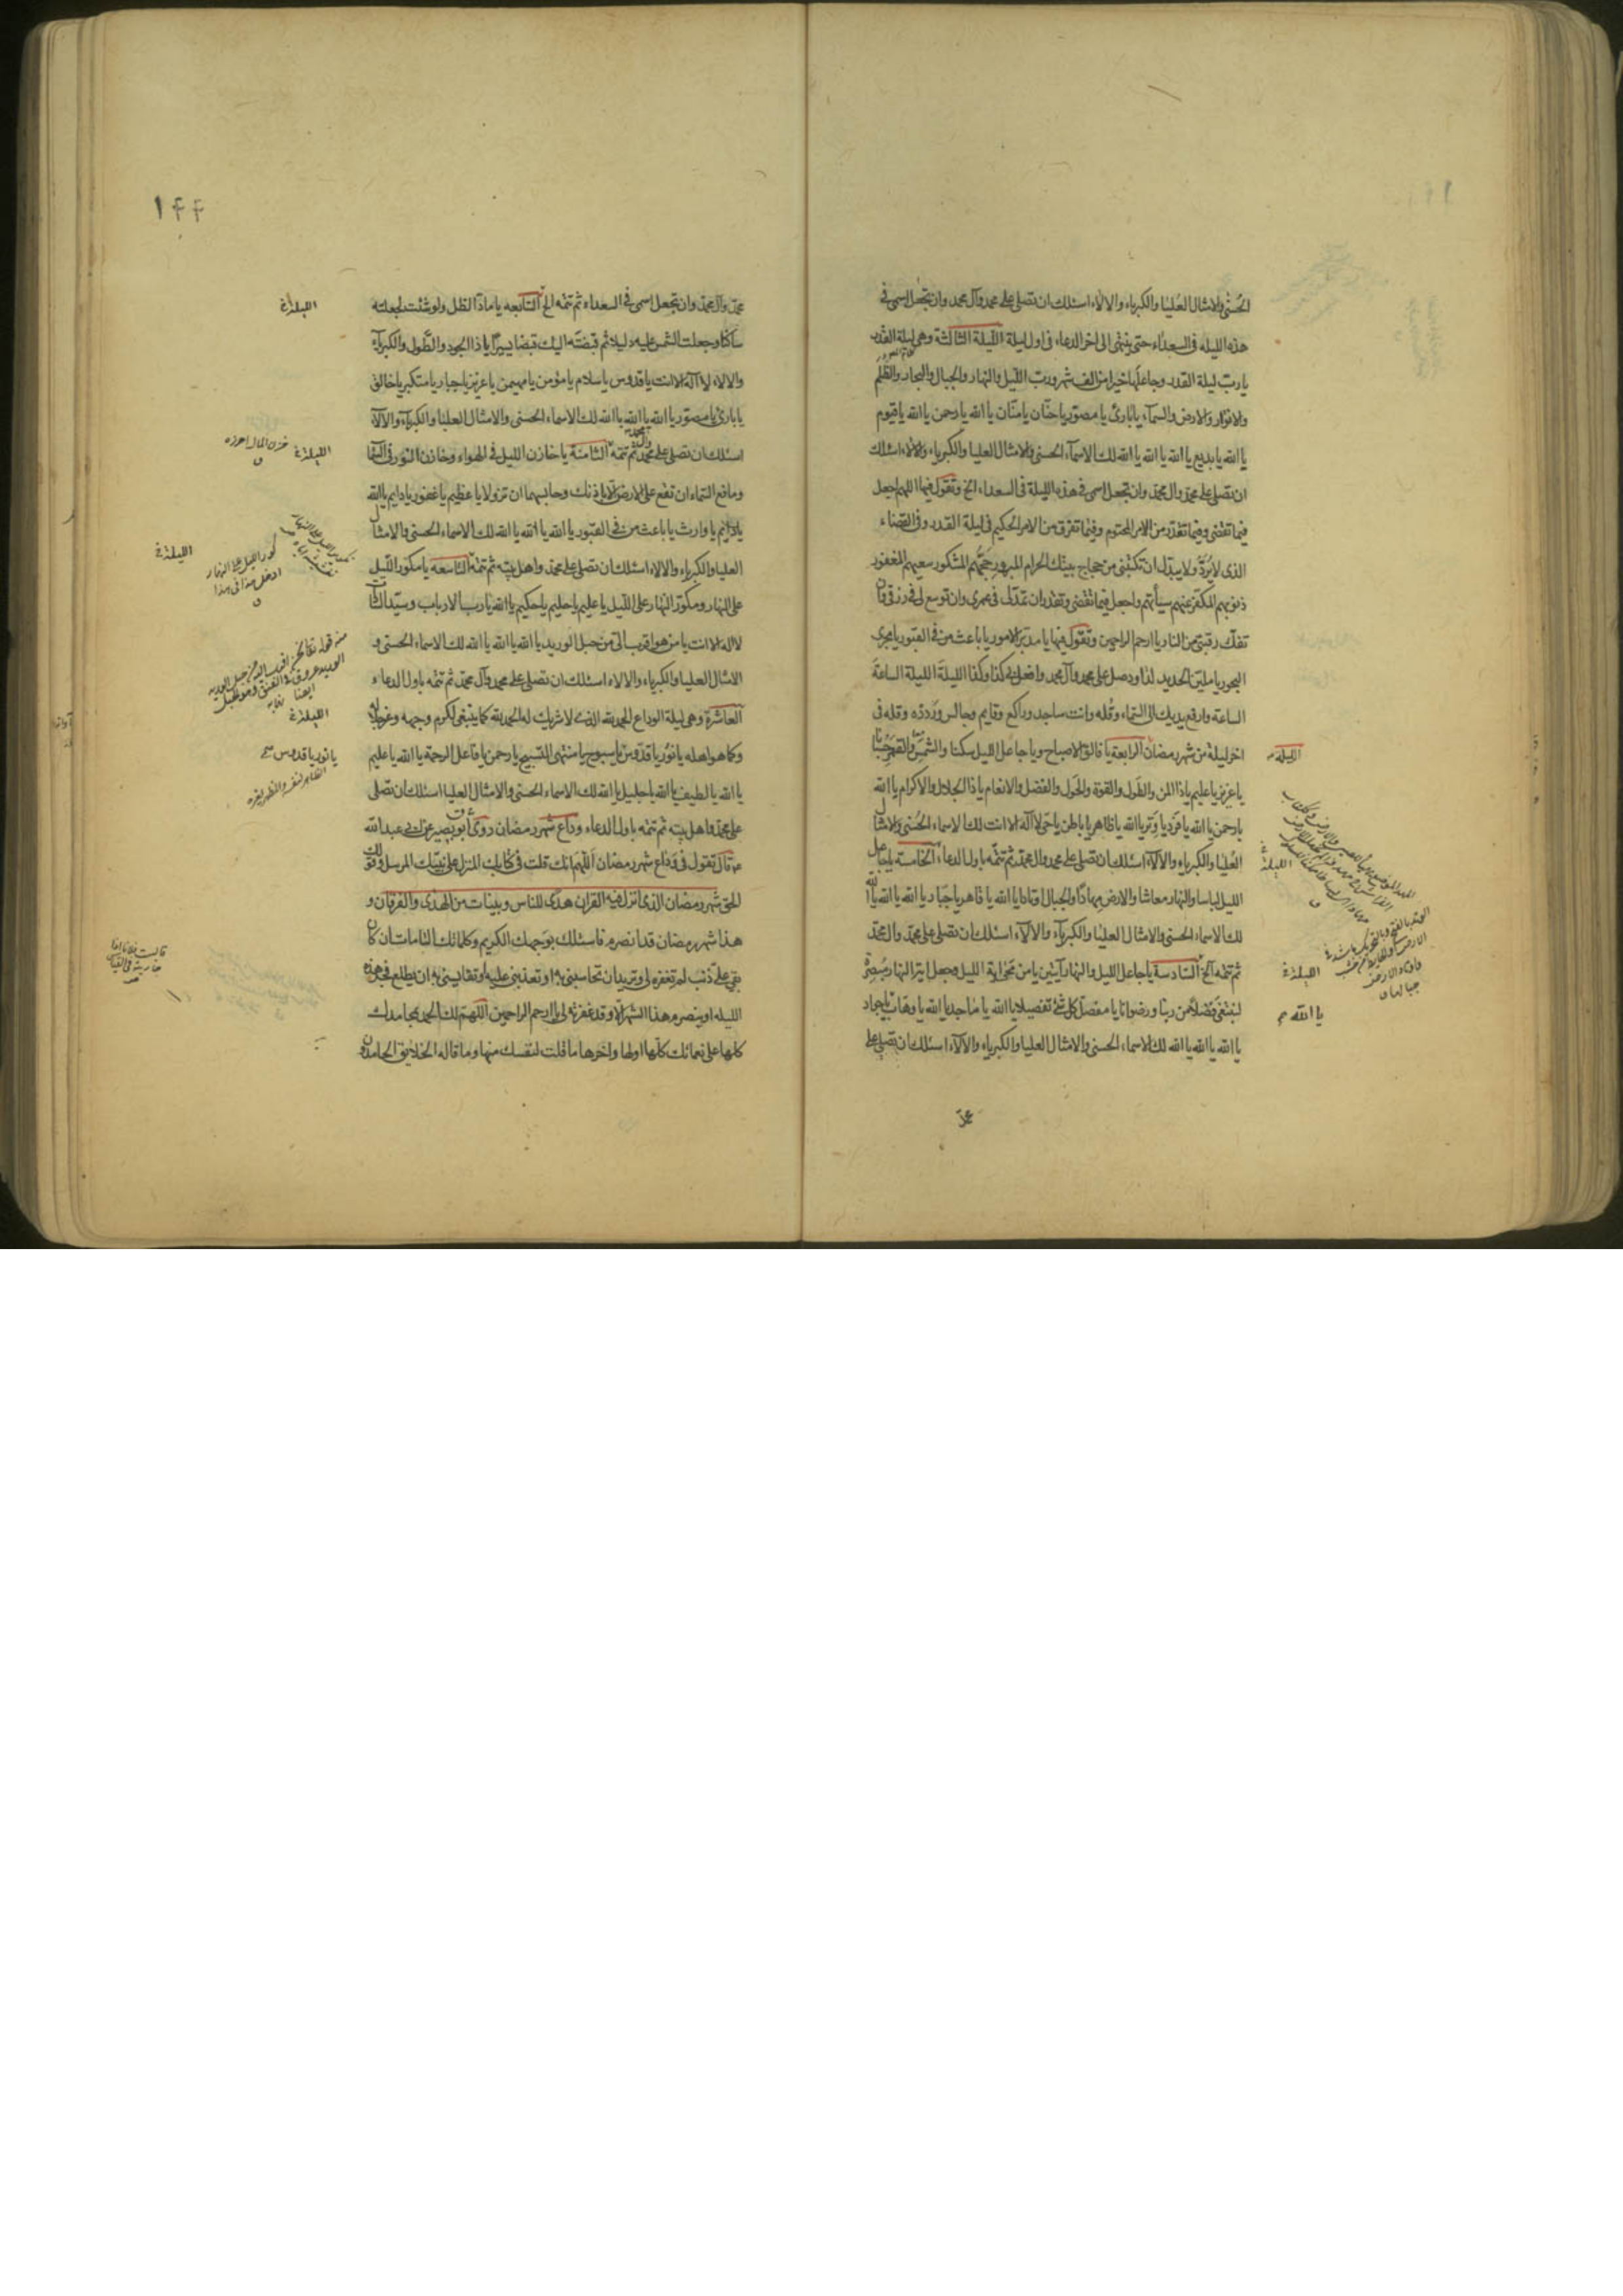 الحُسنٰى والامثال العُليا والكبرياء والالاء اسئلك ان تصلى على محمد وآل محمد وان تجعل اسمى فى
هذه الليله فى السعداء حتى ينتهى الى اخر الدعاء فى اول ليلة الليلة الثالثة وهى ليلة القدر
يا ربّ ليلة القدر وجاعلها خيرا من الف شهر وربّ الليل والنهار والجبال والبحار والظُلَم
والانوار والارض والسماء يا بارئ يا مصوّر يا حنّان يا منّان يا الله يا رحمن يا الله يا قيوم
يا الله يا بديع يا الله يا الله يا الله لك الاسماء الحسنى والامثال العليا والكبرياء والالاء اسئلك
ان تصلى على محمد وال محمد وان تجعل اسمى فى هذه الليلة فى السعداء الخ وتقول فيها اللهم اجعل
فيما تقضى وفيما تقدّر من الامر المحتوم وفيما تفرق من الامر الحكيم فى ليلة القدر وفى القضاء
الذى لا يُردّ ولا يبدّل ان تكتبنى من حجاج بيتك الحرام المبرور حَجّهُم المشكور سعيهم المغفور
ذنوبهم المكفّر عنهم سيأتهم واجعل فيما تقضى وتقدر ان تمدّ لى فى عمرى وان توسع لى فى رزقى وان
تفكّ رقبتى من النار يا ارحم الراحمين وتقول فيها يا مدبّر الامور يا باعث من فى القبور يا مجرى
البحور يا مليّن الحديد لداود صل على محمد وآل محمد وافعل بى كذا وكذا الليلةَ الليلة الساعةَ
الساعة وارفع يديك الى السماء وقُله وانت ساجد وراكع وقايم وجالس ورَدّده وقله فى
اخر ليلة من شهر رمضان الرابعة يا فالق الاصباح ويا جاعل الليل سكنا والشمسَ والقمَر حُسبانا
يا عزيز يا عليم يا ذا المن والطَول والقوة والحَول والفضل والانعام يا ذا الجلال والاكرام يا الله
يا رحمن يا الله يا فرد يا وِتر يا الله يا ظاهر يا باطن يا حىّ لا آله الا انت لك الاسماء الحُسنى والامثال
العُليا والكبرياء والالآء اسئلك ان تصلى على محمد وال محمد ثم تتمّه باول الدعاء الخامسة يا جاعل
الليل لباسا والنهار معاشا والارض مِهادًا والجبال اوتادا يا الله يا قاهر يا جَبّار يا الله يا الله يا الله
لك الاسماء الحسنى والامثال العليا والكبريآء والالآء اسئلك ان تصلى على محمد وال محمد
ثم تتمّه الخ السّادسة يا جاعل الليل والنهار آيتين يا من مَحَىٰ آية الليل وجعل اية النهار مُبصِرة
لنبتغى فَضلاً من ربنا ورضوانا يا مفصّل كل شئ تفصيلا يا الله يا مَاجد يا الله يا وهّاب يا جواد
يا الله يا الله يا الله لك الاسماء الحسنى والامثال العليا والكبرياء والالآء اسئلك ان تصلى على
محمد
الليلة
الليلة
الليلة
يا الله
١٤٤
محمد وآل محمد وان تجعل اسمى فى السعداء ثم تتمّه الخ السّابعه يا مادّ الظل ولو شئت لجعلته
ساكنا وجعلت الشمس عليه دليلا ثم قبضتَه اليك قبضا يسيرًا يا ذا الجود والطَّول والكبرياء
والالاء لا آله الا انت يا قدوس يا سلام يا مؤمن يا مهيمن يا عزيز يا جبار يا متكبر يا خالق
يا بارئ يا مصوّر يا الله يا الله يا الله لك الاسماء الحسنى والامثال العليا والكبريآء والالآء
اسئلك ان تصلى على محمد وآل محمد ثم تتمّه الثامنة يا خازن الليل فى الهواء وخازن النور فى السما
ومانع السماء ان تقع على الارض الا باذنك وحابسهما ان تزولا يا عظيم يا غفور يا دايم يا الله
يا دايم يا وارث يا باعث من فى القبور يا الله يا الله يا الله لك الاسماء الحسنى والامثال
العليا والكبرياء والالاء اسئلك ان تصلى على محمد واهل بيته ثم تتمّه التاسعه يا مكوّر الليل
على النهار ومكوّر النهار على الليل يا عليم يا حليم يا حكيم يا الله يا رب الارباب وسيّد السّادات
لا اله الا انت يا من هو اقرب الىّ من حبل الوريد يا الله يا الله يا الله لك الاسماء الحسنى و
الامثال العليا والكبرياء والالاء اسئلك ان تصلى على محمد وآل محمد ثم تتمّه باول الدعاء
العاشرة وهى ليلة الوداع الحمد لله الذى لا شريك له الحمد لله كما ينبغى لكرم وجهه وعز جلاله
وكما هو اهله يا نُور يا قدّوس يا سبوح يا منتهى التسبيح يا رحمن يا فاعل الرحمة يا الله يا عليم
يا الله يا لطيف يا الله يا جليل يا الله لك الاسماء الحسنى والامثال العليا اسئلك ان تصلى
على محمد واهل بيته ثم تتمّه باول الدعاء وداع شهر رمضان روى ابو بصير عن ابى عبد الله
ع قال تقول فى وداع شهر رمضان اللّهم انك قلت فى كتابك المنزل على نبيّك المرسل وقولك
الحق شهر رمضان الذى انزل فيه القران هدًى للناس وبينات من الهدى والفرقان و
هذا شهر رمضان قد انصرم فاسئلك بوجهك الكريم وكلماتك التامات ان كان
بقى علىّ ذنب لم تغفره لى وتريد ان تحاسبنى به او تعذبنى عليه او تقايسنى به ان يطلع فجر هذه
الليله او ينصرم هذا الشهر الا وقد غفرته لى يا ارحم الراحمين اللّهم لك الحمد بمحامدك
كلها على نعمائك كلّها اولها واخرها ما قلت لنفسك منها وما قاله الخلايق الحامدون
الليلة
الليلة
خزن المال احرزه
الليلة
كور الليل على النهار
ادخل هذا فى هذا
الليلة
يا نور يا قدوس